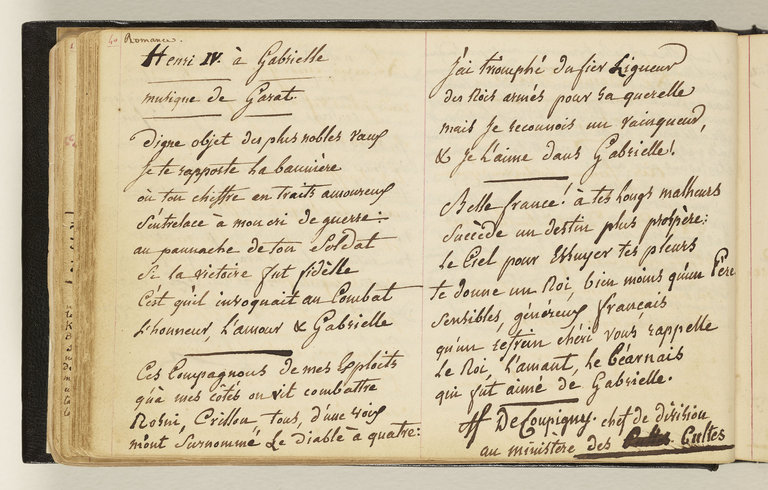 40 Romance.
Henri IV. à Gabrielle
musique de Garat.
Digne objet des plus nobles vœux
Je te rapporte la bannière
où ton chiffre en traits amoureux
S'entrelace à mon cri de guerre:
au pannache de ton Soldat
Si la victoire fut fidèlle
C'est qu'il invoquait au Combat
L'honneur, L'amour & Gabrielle
Ces Compagnons de mes Exploits
qu'à mes cotés on vit combattre
Rosni, Crillon, tous, d'une voix
m'ont Surnommé Le Diable à quatre:
J'ai triomphé du fier Ligueur
des Rois armés pour sa querelle
mais Je reconnois un vainqueur,
& Je L'aime dans Gabrielle!
Belle france! à tes longs malheurs
Succède un destin plus prospère:
Le Ciel pour Essuyer tes pleurs
te donne un Roi, bien moins qu'un Père
Sensibles, généreux français
qu'un refrein chéri vous rappelle
Le Roi, L'amant, Le Béarnais
qui fut aimé de Gabrielle.
De Coupigny. chef de division
au ministère des Cultes